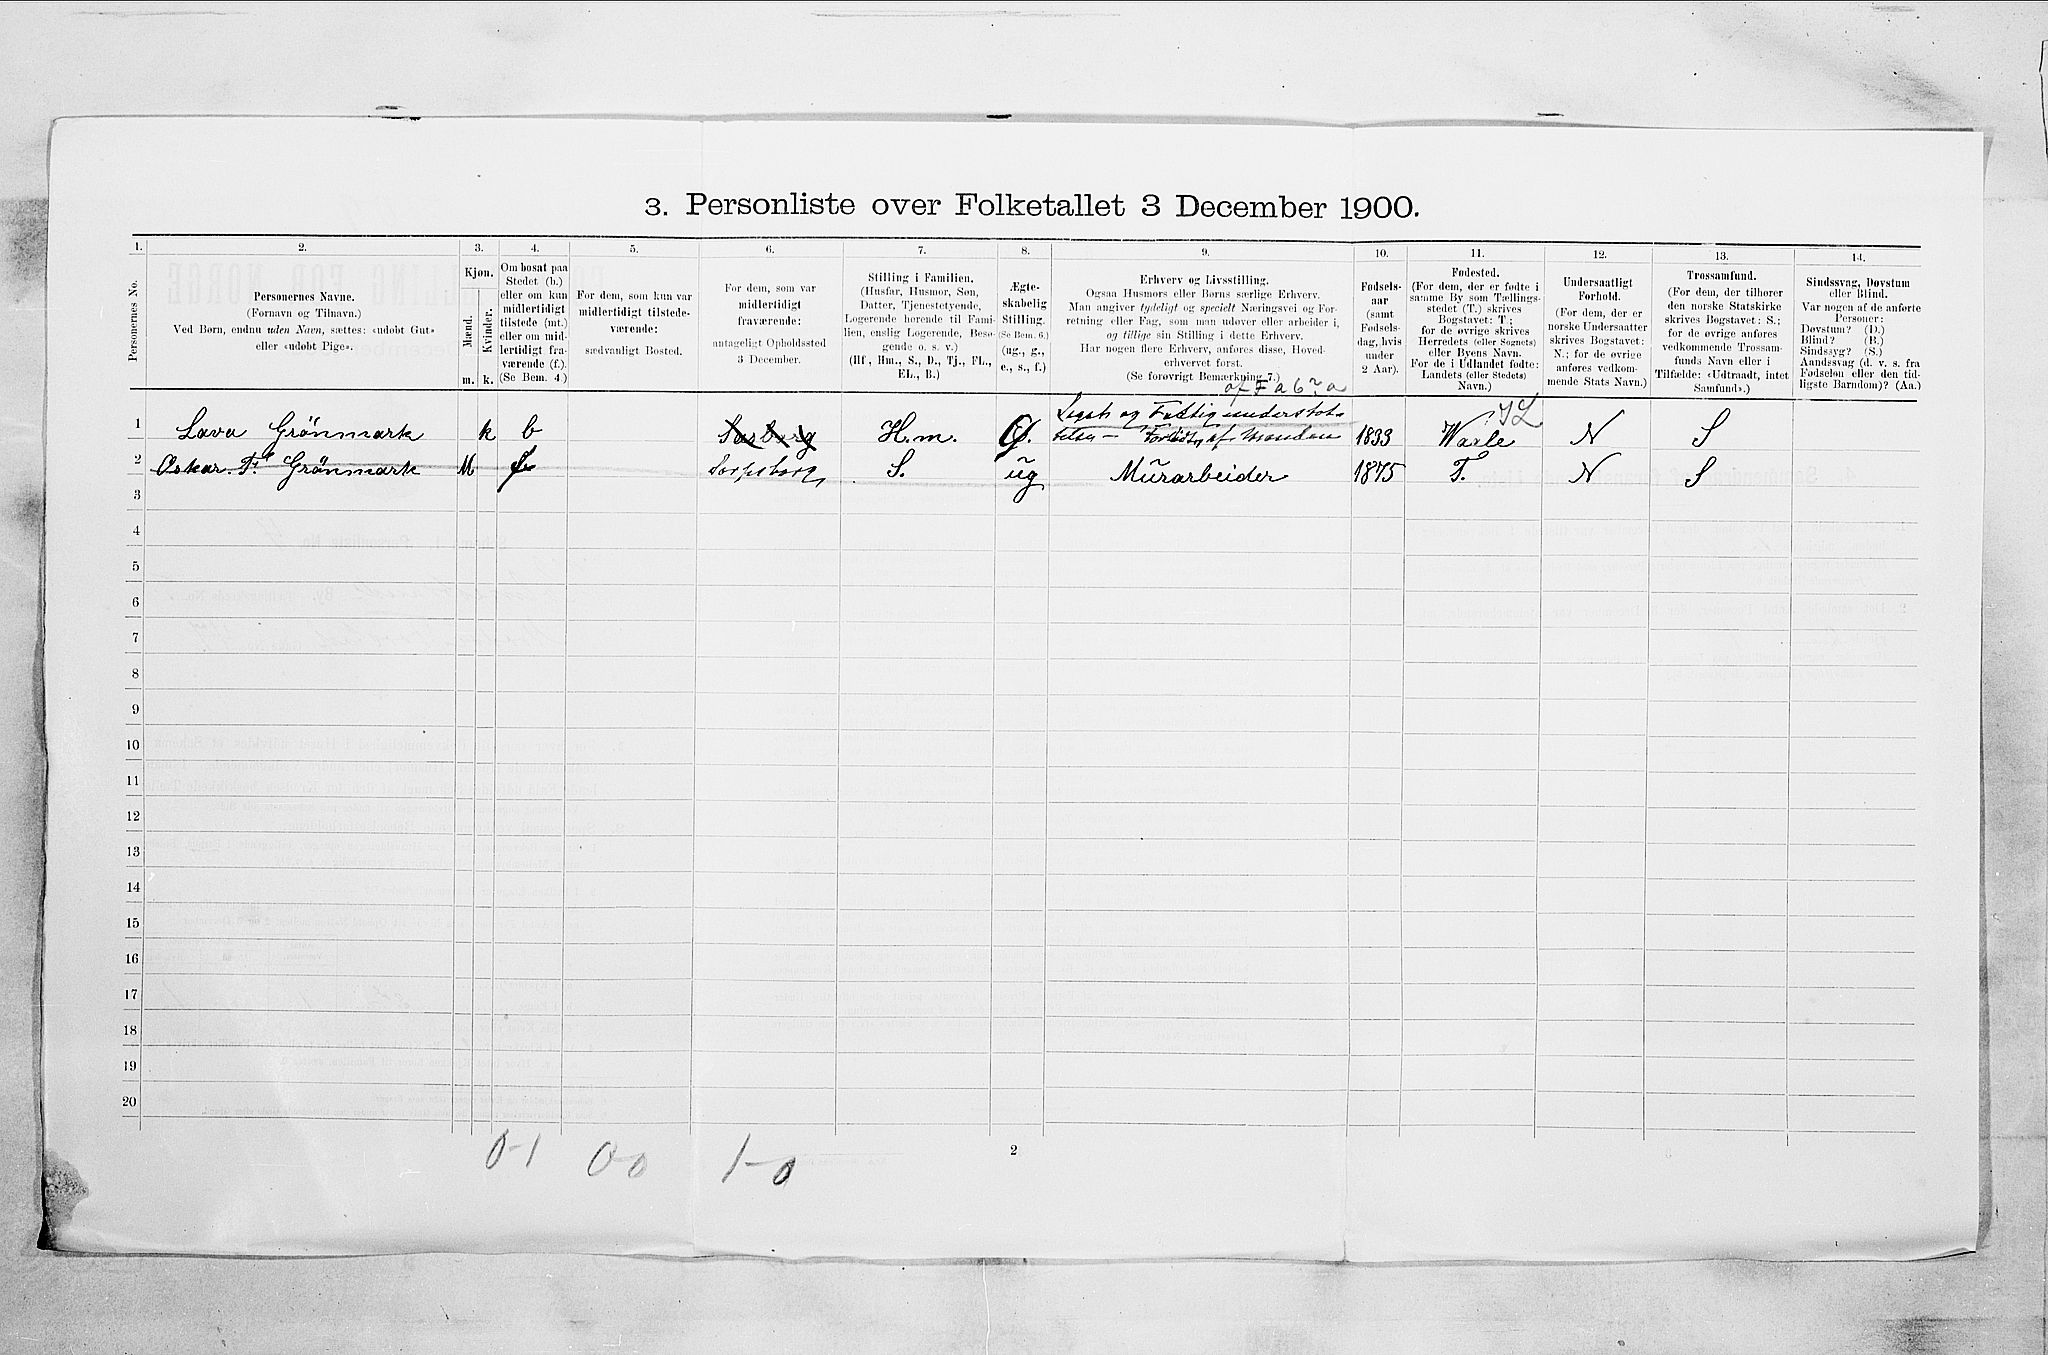 3. Personliste over Folketallet 3 December 1900.
1. 2. 3. 4. 5. 6. 7. 8. 9. 10. 11. 12. 13. 14.
Personernes No.
Personernes Navne.
(Fornavn og Tilnavn.)
Ved Børn, endnu uden Navn, sættes: «udøbt Gut»
eller «udøbt Pige».
Kjøn.
Mænd.
Kvinder.
m. k.
Om bosat paa
Stedet (b.)
eller om kun
midlertidigt
tilstede (mt.)
eller om mid-
lertidigt fra-
værende (f.).
(Se Bem. 4.)
For dem, som kun var
midlertidigt tilstede-
værende:
sædvanligt Bosted.
For dem, som var
midlertidigt
fraværende:
antageligt Opholdssted
3 December.
Stilling i Familien.
(Husfar, Husmor, Søn,
Datter, Tjenestetyende,
Logerende hørende til Fami-
lien, enslig Logerende, Besø-
gende o. s. v.)
(Hf, Hm., S., D., Tj., FL.,
EL., B.)
Ægte-
skabelig
Stilling.
(Se Bem. 6.)
(ug., g.,
e., s., f.)
Erhverv og Livsstilling.
Ogsaa Husmors eller Børns særlige Erhverv.
Man angiver tydeligt og specielt Næringsvei og For-
retning eller Fag, som man udøver eller arbeider i,
og tillige sin Stilling i dette Erhverv.
Har nogen flere Erhverv, anføres disse, Hoved-
erhvervet først.
(Se forøvrigt Bemærkning 7.)
Fødsels-
aar
(samt
Fødsels-
dag, hvis
under
2 Aar).
Fødested.
(For dem, der er fødte i
samme By som Tællings-
stedet (T.) skrives
Bogstavet: T.;
for de øvrige skrives
Herredets (eller Sognets)
eller Byens Navn.
For de i Udlandet fødte:
Landets (eller Stedets)
Navn.)
Undersaatligt
Forhold.
(For dem, der er
norske Undersaatter
skrives Bogstavet:
N.; for de øvrige
anføres vedkom-
mende Stats Navn.)
Trossamfund.
(For dem, der tilhører
den norske Statskirke
skrives Bogstavet: S.;
for de øvrige anføres
vedkommende Trossam-
funds Navn eller i
Tilfælde: «Udtraadt, intet
Samfund».)
Sindssvag, Døvstum
eller Blind.
Var nogen af de anførte
Personer:
Døvstum? (D.)
Blind? (B.)
Sindssyg? (S.)
Aandssvag (d. v. s. fra
Fødselen eller den tid-
ligste Barndom)? (Aa.)
1 Lava Grönmark k b Sarborg H.m. Legat og Fattigunderstöt- telse - Forladt af Manden 1833 N S
2 Oskar Grönmark M Sarpsborg S. ug Mürarbeider 1875 T. N S
3
4
5
6
7
8
9
10
11
12
13
14
15
16
17
18
19
20
0-1 0-0 1-0
2